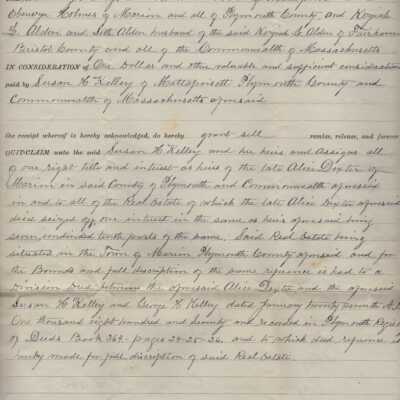 Ebenezer Holmes of Marion and all of Plymouth County, and Keziah
G. Alden and Seth Alden husband of the said Keziah G. Alden of Fairhaven
Bristol County and all of the Commonwealth of Massachusetts
IN CONSIDERATION of One Dollar and other valuable and sufficient consideration
paid by Susan H Kelley of Mattapoisett Plymouth County and
Commonwealth of Massachusetts aforesaid
the receipt whereof is hereby acknowledged, do hereby grant sell remise, release, and forever
QUIT-CLAIM unto the said Susan H Kelley and her heirs and Assigns all
of our right title and interest as heirs of the late Alice Dexter of
Marion in said County of Plymouth and Commonwealth aforesaid
in and to all of the Real Estate of which the late Alice Dexter aforesaid
died seized of, our interest in the same as heirs aforesaid being
seven undivided tenth parts of the same. Said Real Estate being
situated in the Town of Marion Plymouth County aforesaid and for
the Bounds and full discription of the same referance is had to a
Division Deed between the aforesaid Alice Dexter and the aforesaid
Susan H Kelley and George H Kelley dated January twenty seventh A.D.
One thousand eight hundred and seventy one recorded in Plymouth Registry
of Deeds Book 369. pages 24-25-26. and to which deed referance is
made for full discription of said Real Estate.